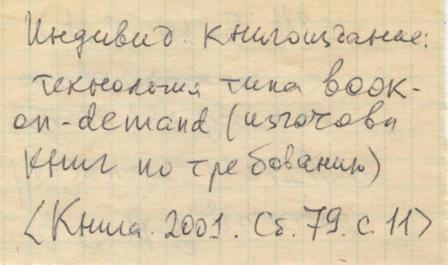 Индивид. книгоиздание:
технология типа book-
on-demand (изготовл
книг по требованию)
<Книга. 2001. Сб. 79. с. 11>